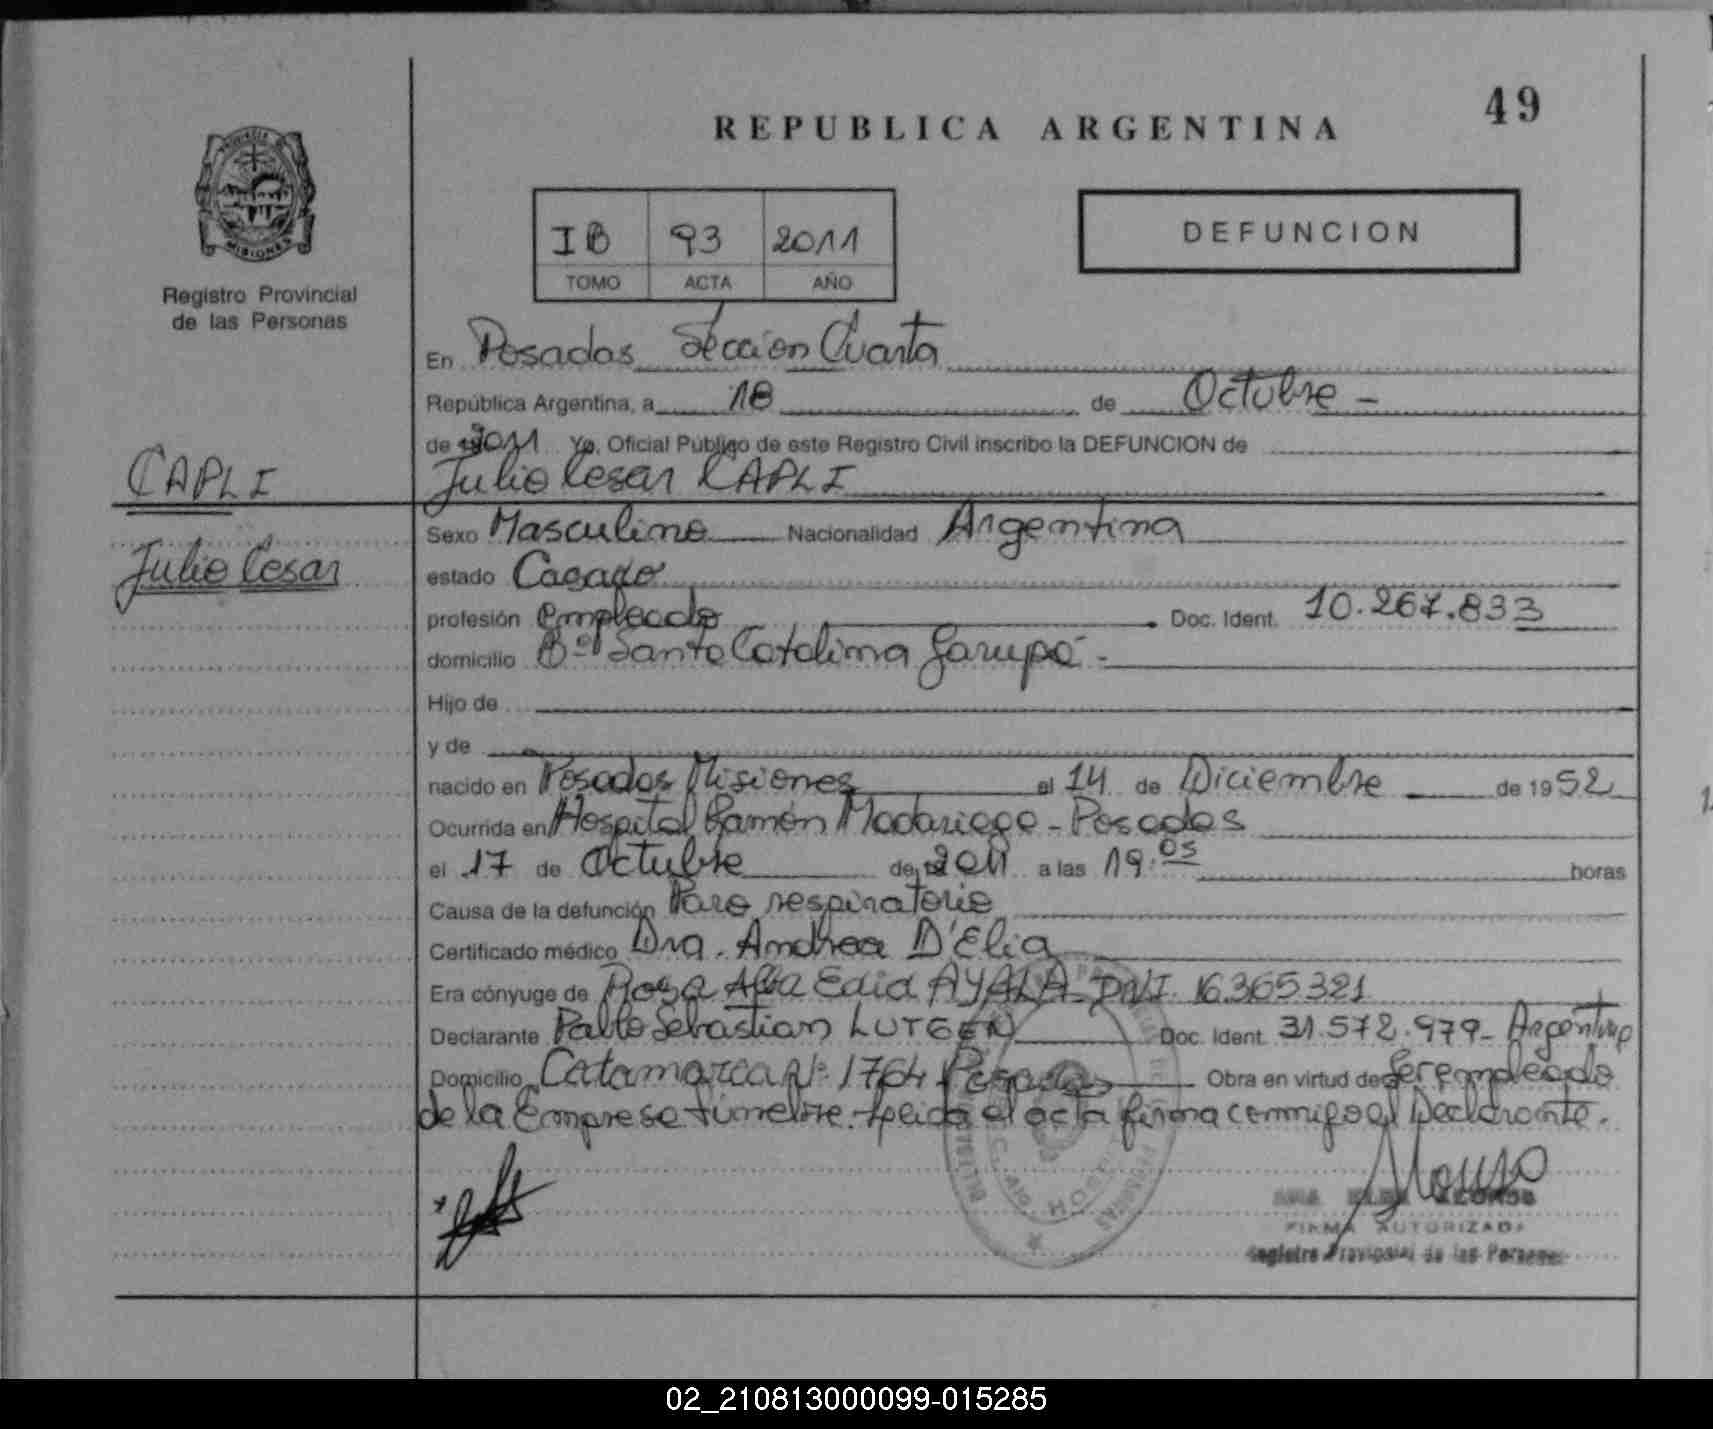 49
REPUBLICA ARGENTINA
PROVINCIA DE
MISIONES
Registro Provincial
de las Personas
IB 93 2011
TOMO ACTA AÑO
DEFUNCION
En Posadas Sección Cuarta
República Argentina, a 18 de Octubre -
de 2011 Yo, Oficial Público de este Registro Civil inscribo la DEFUNCION de
CAPLI
Julio Cesar CAPLI
Julio Cesar
Sexo Masculino Nacionalidad Argentina
estado Casado
profesión Empleado Doc. Ident. 10.267.833
domicilio Bº Santa Catalina Garupá -
Hijo de
y de
nacido en Posadas Misiones el 14 de Diciembre de 1952
Ocurrida en Hospital Ramón Madariaga - Posadas
el 17 de Octubre de 2011 a las 19:05 horas
Causa de la defunción Paro respiratorio
Certificado médico Dra. Andrea D'Elia
Era cónyuge de Rosa Alba Edid AYALA - DNI 16.365321
Declarante Pablo Sebastian LUTGEN Doc. Ident. 31.572.979 - Argentino
Domicilio Catamarca Nº 1764 Posadas Obra en virtud de Ser empleado
de la Empresa fúnebre. Leida el acta firma conmigo el Declarante.
FIRMA AUTORIZADA
Registro Provincial de las Personas
02_210813000099-015285